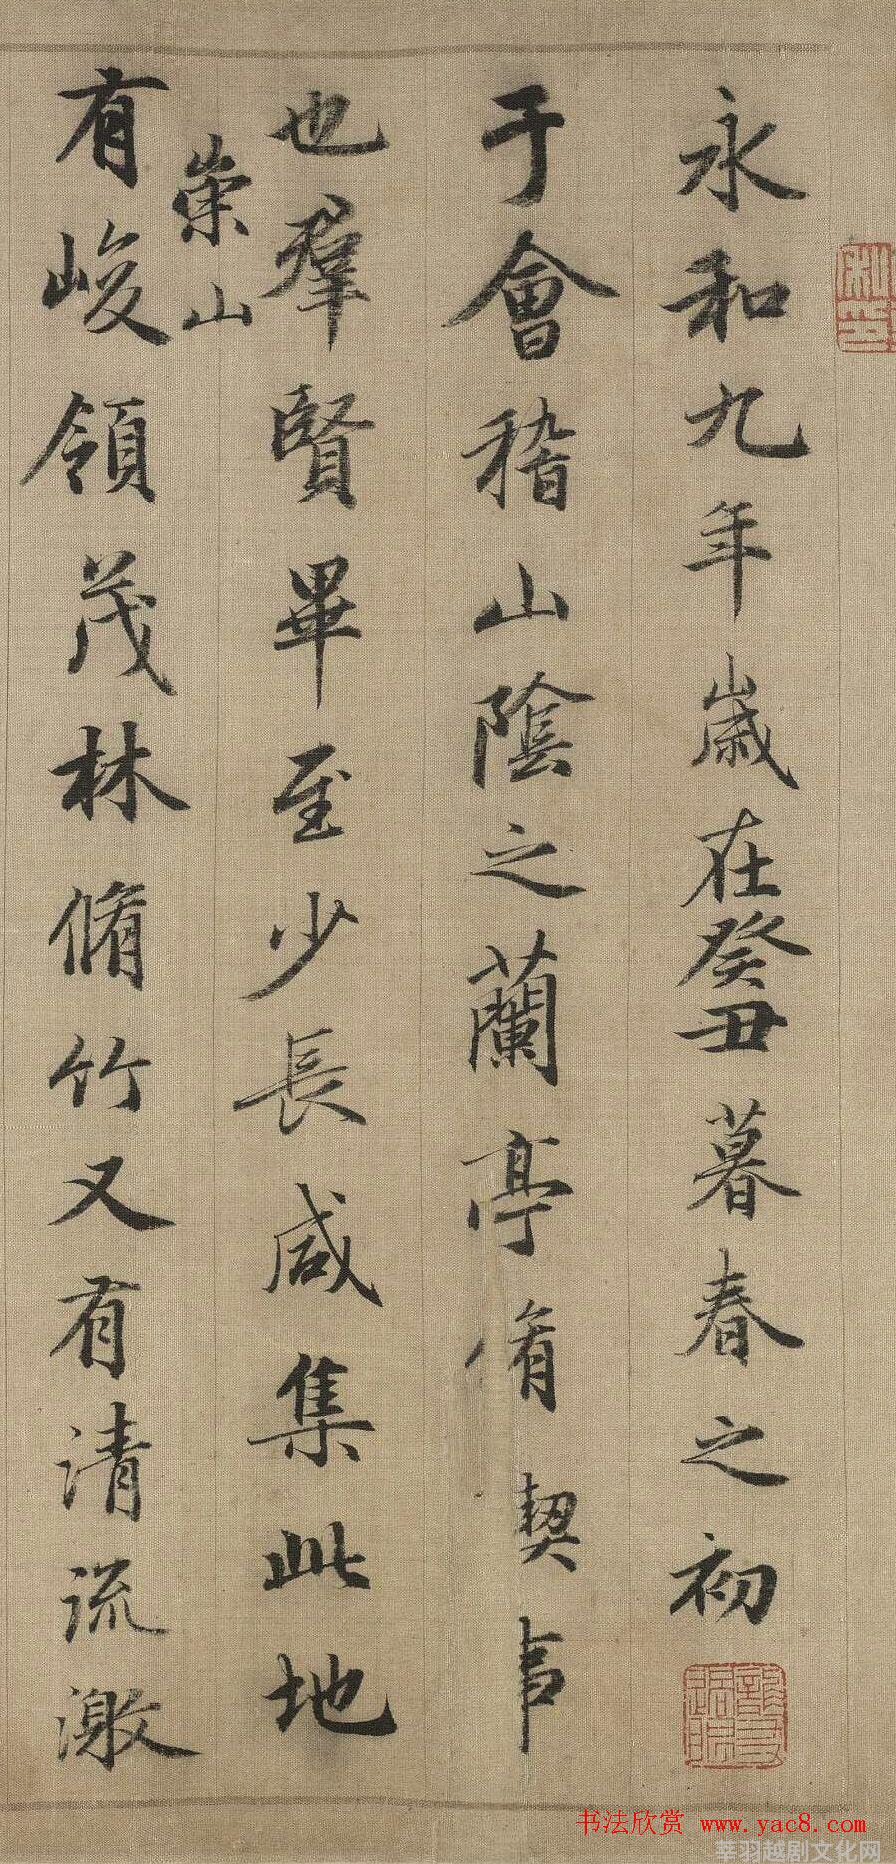 永和九年歲在癸丑暮春之初
于會稽山陰之蘭亭脩禊事
也羣賢畢至少長咸集此地
崇山
有峻領茂林脩竹又有清流激
书法欣赏 www.yac8.com
莘羽越剧文化网